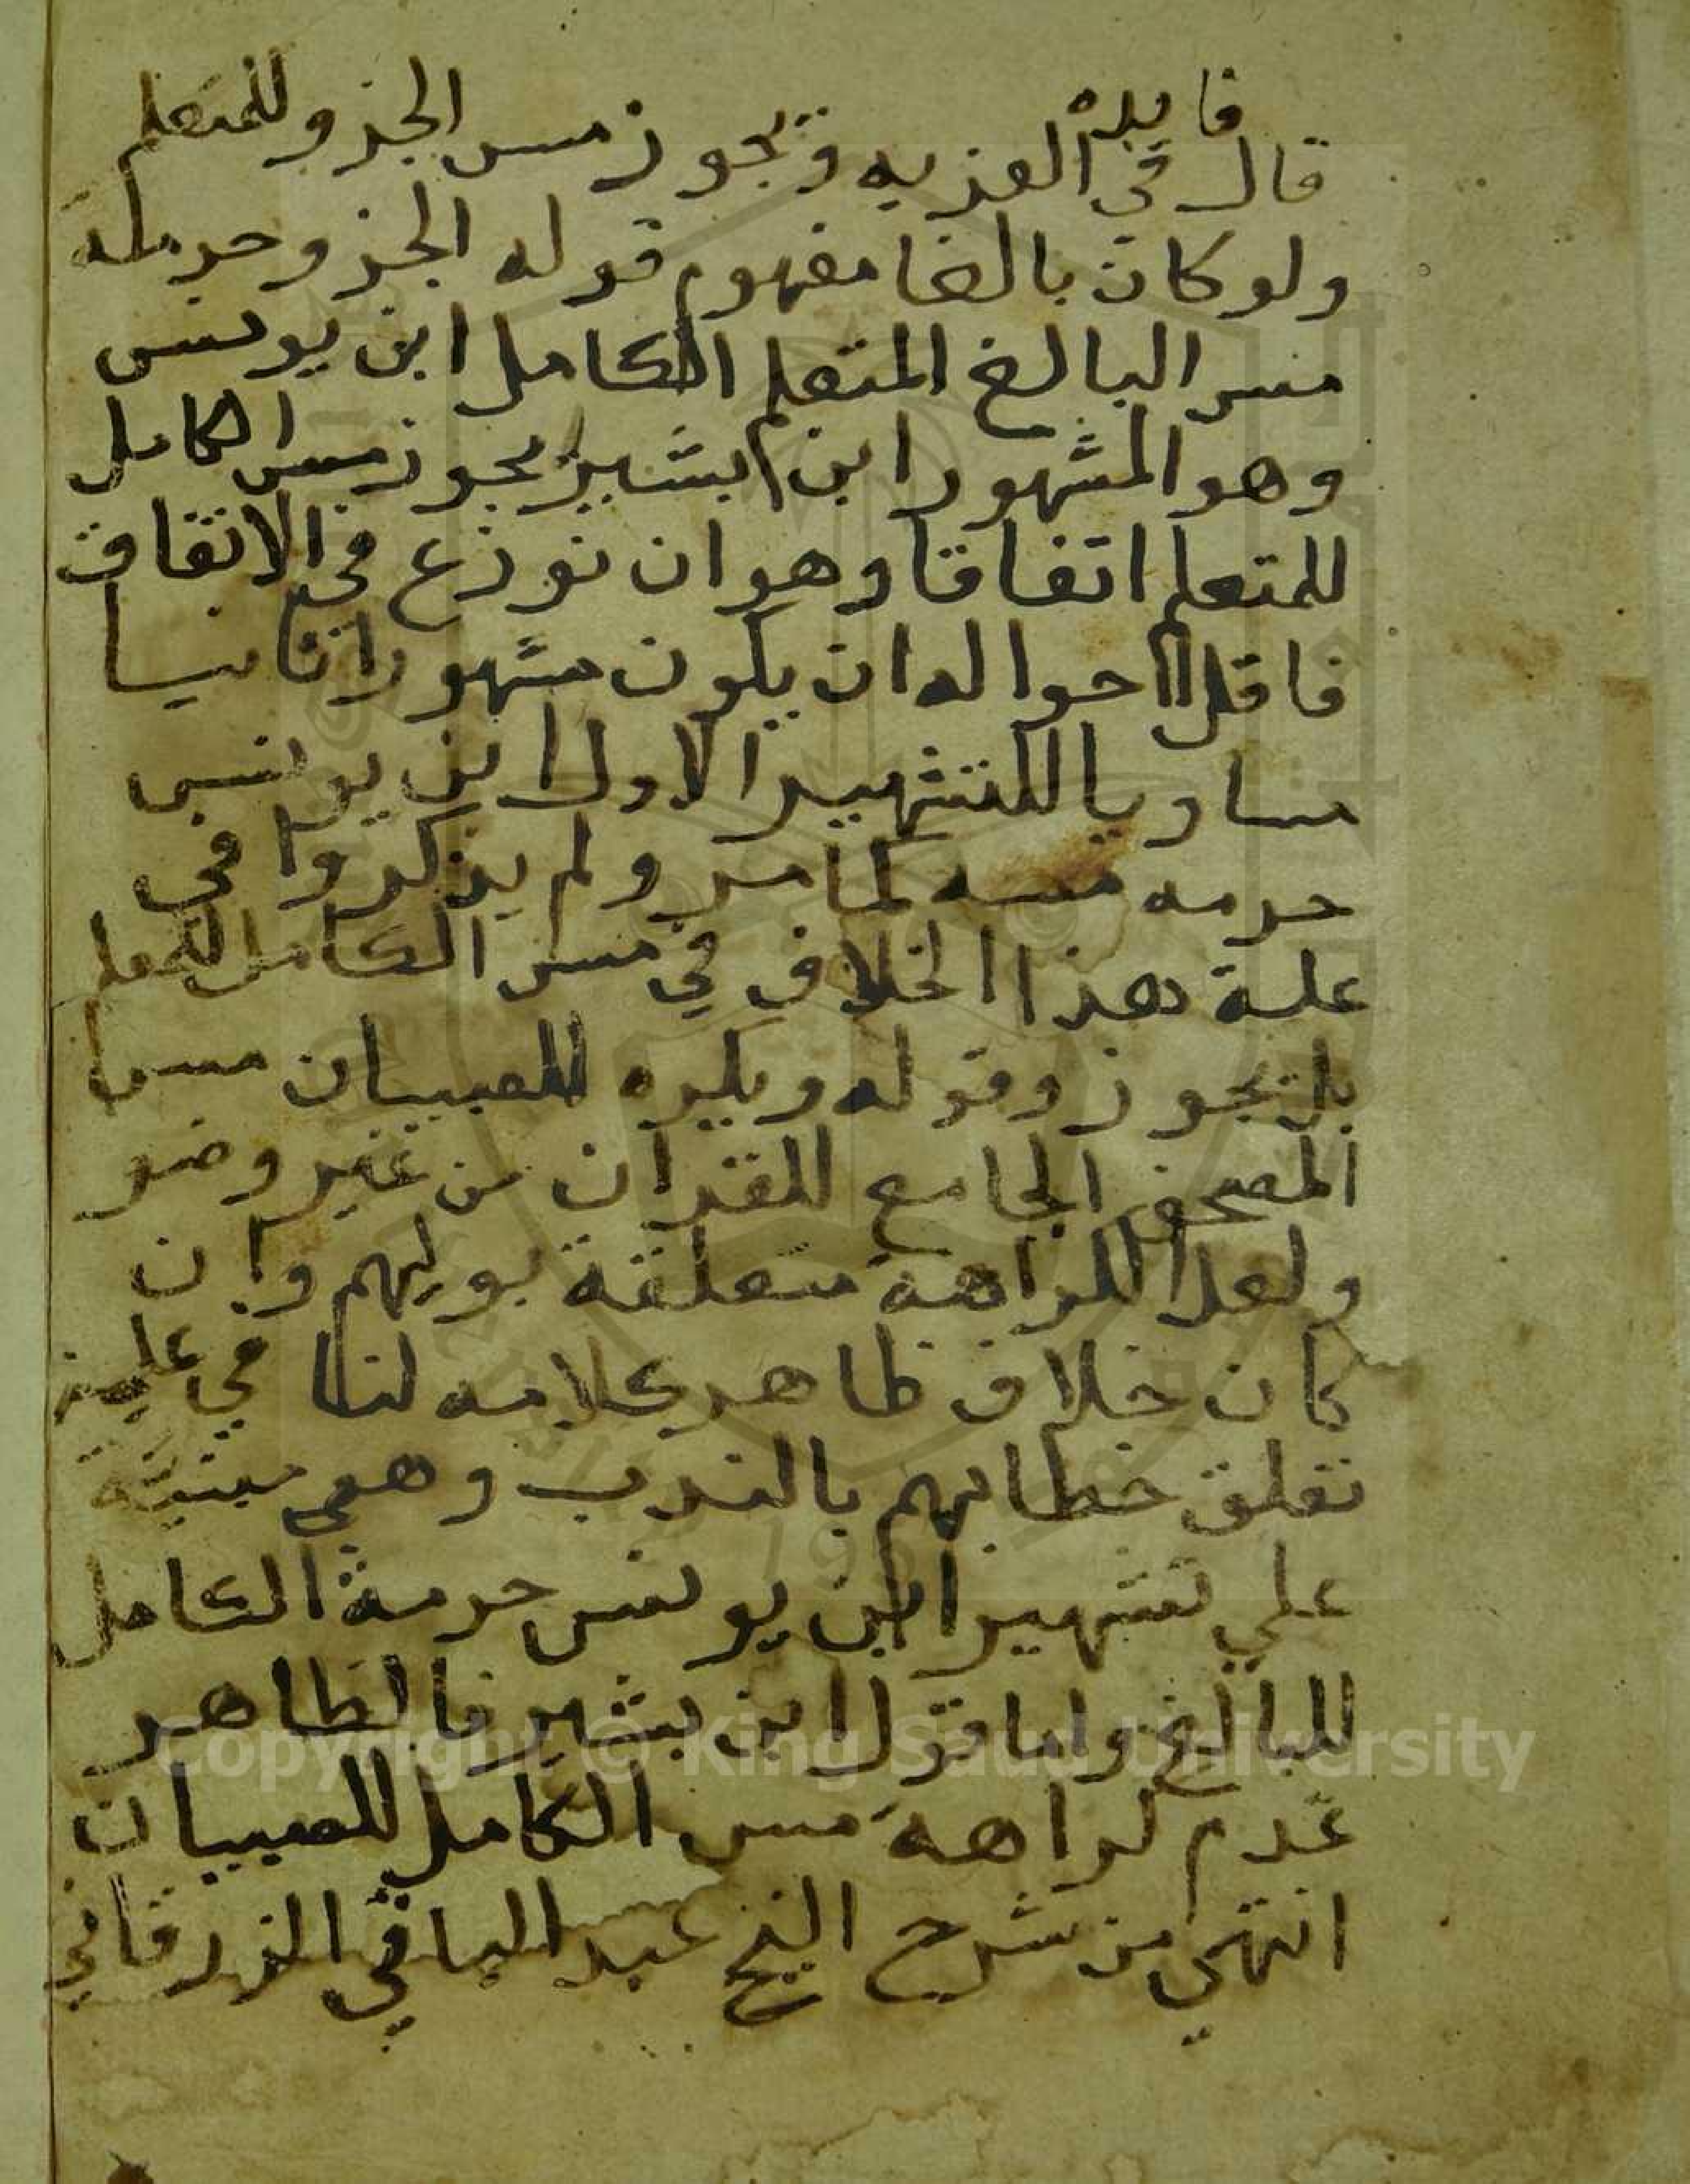 فايده
قال في العزيه ويجوز مس الجزو للمتعلم
ولو كان بالغا مفهوم قوله الجزو حرمة
مس البالغ المتعلم الكامل ابن يونس
وهو المشهور ابن بشير يجوز مس الكامل
للمتعلم اتفاقا وهو ان نوزع في الاتفاق
فاقل احواله ان يكون مشهورا ثانيا
مساويا للتشهير الاول ابن يونس
حرمه مسه لما مر ولم يذكروا في
علة هذا الخلاف في مس الكامل للمعلم
بل يجوز وقوله ويكره للصبيان مس
المصحف الجامع للقران من غير وضو
ولعل الكراهة متعلقة بوليهم وان
كان خلاف ظاهر كلامه لنا في
تعلق خطابهم بالندب وهي مبنية
علي تشهير ابن يونس حرمة الكامل
للبالغ واما قول ابن بشير فالظاهر
عدم كراهة مس الكامل للصبيان
انتهي من شرح الشيخ عبد الباقي الزرقاني
Copyright © King Saud University